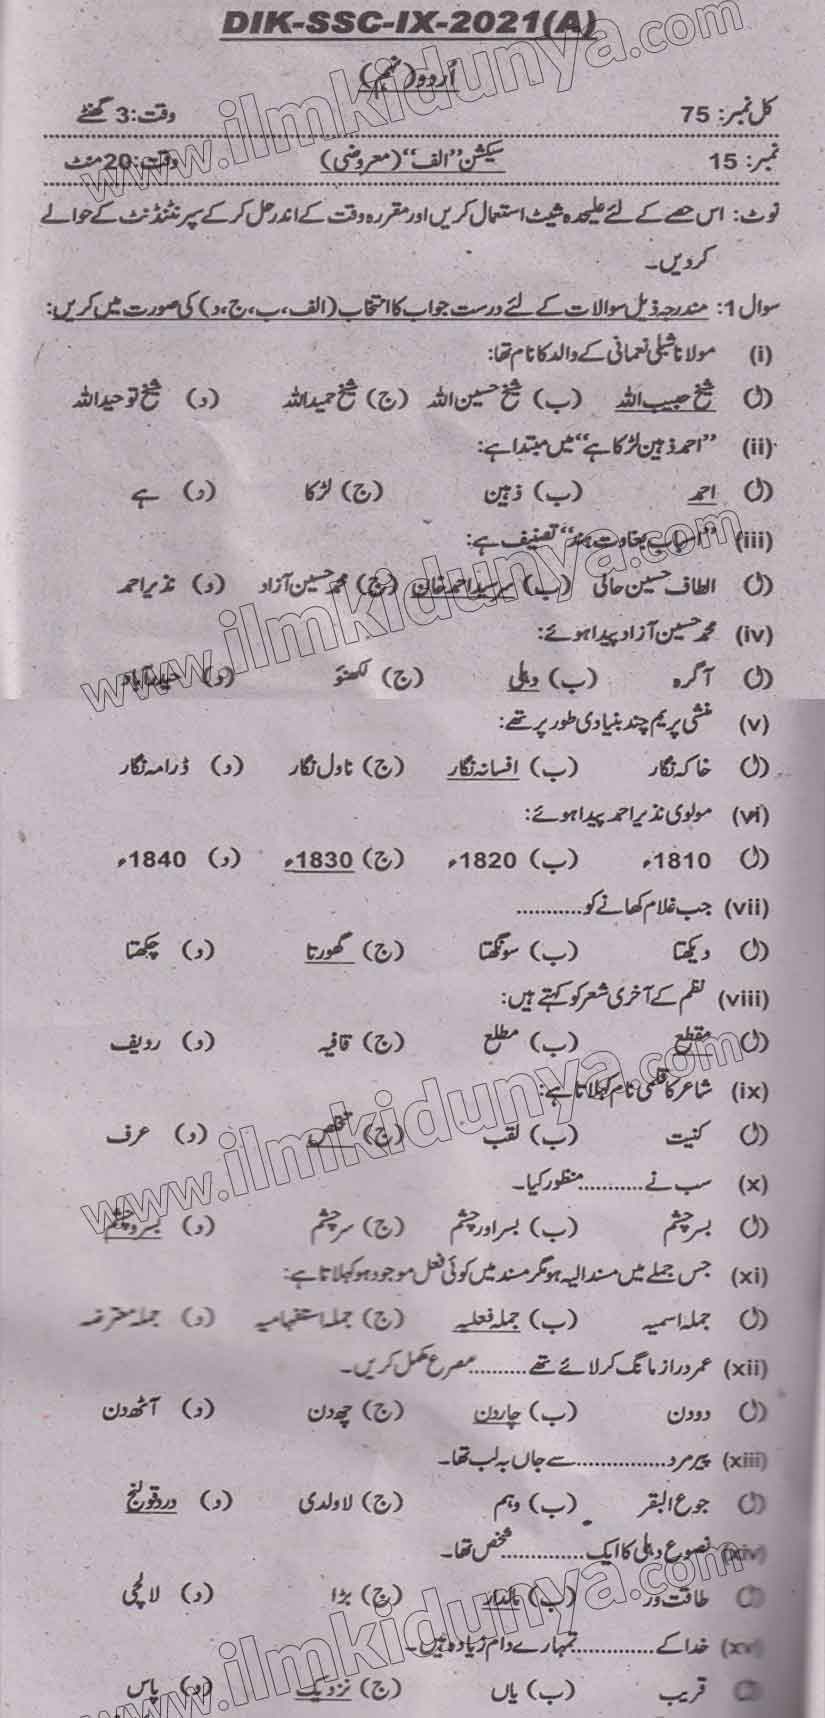 DIK-SSC-IX-2021(A)
اُردو (نہم)
کل نمبر: 75 وقت: 3 گھنٹے
نمبر: 15 سیکشن "الف" (معروضی) وقت: 20 منٹ
نوٹ: اس حصے کے لئے علیحدہ شیٹ استعمال کریں اور مقررہ وقت کے اندر حل کر کے سپرنٹنڈنٹ کے حوالے
کر دیں۔
سوال 1: مندرجہ ذیل سوالات کے لئے درست جواب کا انتخاب (الف، ب، ج، د) کی صورت میں کریں:
(i) مولانا شبلی نعمانی کے والد کا نام تھا:
(ا) شیخ حبیب اللہ (ب) شیخ حسین اللہ (ج) شیخ حمید اللہ (د) شیخ توحید اللہ
(ii) "احمد ذہین لڑکا ہے" میں مبتدا ہے:
(ا) احمد (ب) ذہین (ج) لڑکا (د) ہے
(iii) "اسباب بغاوت ہند" تصنیف ہے:
(ا) الطاف حسین حالی (ب) سرسید احمد خان (ج) محمد حسین آزاد (د) نذیر احمد
(iv) محمد حسین آزاد پیدا ہوئے:
(ا) آگرہ (ب) دہلی (ج) لکھنؤ (د) حیدرآباد
(v) منشی پریم چند بنیادی طور پر تھے:
(ا) خاکہ نگار (ب) افسانہ نگار (ج) ناول نگار (د) ڈرامہ نگار
(vi) مولوی نذیر احمد پیدا ہوئے:
(ا) 1810ء (ب) 1820ء (ج) 1830ء (د) 1840ء
(vii) جب غلام کھانے کو...........
(ا) دیکھتا (ب) سونگھتا (ج) گھورتا (د) چکھتا
(viii) نظم کے آخری شعر کو کہتے ہیں:
(ا) مقطع (ب) مطلع (ج) قافیہ (د) ردیف
(ix) شاعر کا قلمی نام کہلاتا ہے:
(ا) کنیت (ب) لقب (ج) تخلص (د) عرف
(x) سب نے...........منظور کیا۔
(ا) بسر چشم (ب) بسر اور چشم (ج) سر چشم (د) بسر و چشم
(xi) جس جملے میں مسند الیہ ہو مگر مسند میں کوئی فعل موجود ہو کہلاتا ہے:
(ا) جملہ اسمیہ (ب) جملہ فعلیہ (ج) جملہ استفہامیہ (د) جملہ معترضہ
(xii) عمر دراز مانگ کر لائے تھے..........مصرع مکمل کریں۔
(ا) دو دن (ب) چار دن (ج) چھ دن (د) آٹھ دن
(xiii) پیر مرد...............سے جاں بہ لب تھا۔
(ا) جوع البقر (ب) وہم (ج) لاولدی (د) درد قولنج
(xiv) نصوع دہلی کا ایک..............شخص تھا۔
(ا) طاقت ور (ب) مالدار (ج) بڑا (د) لالچی
(xv) خدا کے.............تمہارے دام زیادہ ہیں۔
(ا) قریب (ب) یاں (ج) نزدیک (د) پاس
www.ilmkidunya.com
www.ilmkidunya.com
www.ilmkidunya.com
www.ilmkidunya.com